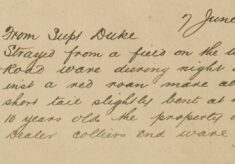 7 June
From Supt Duke
Strayed from a field on the
Road ware during night
inst a red roan mare
short tail slightly bent at
10 years old the property
Dealer colliers End ware